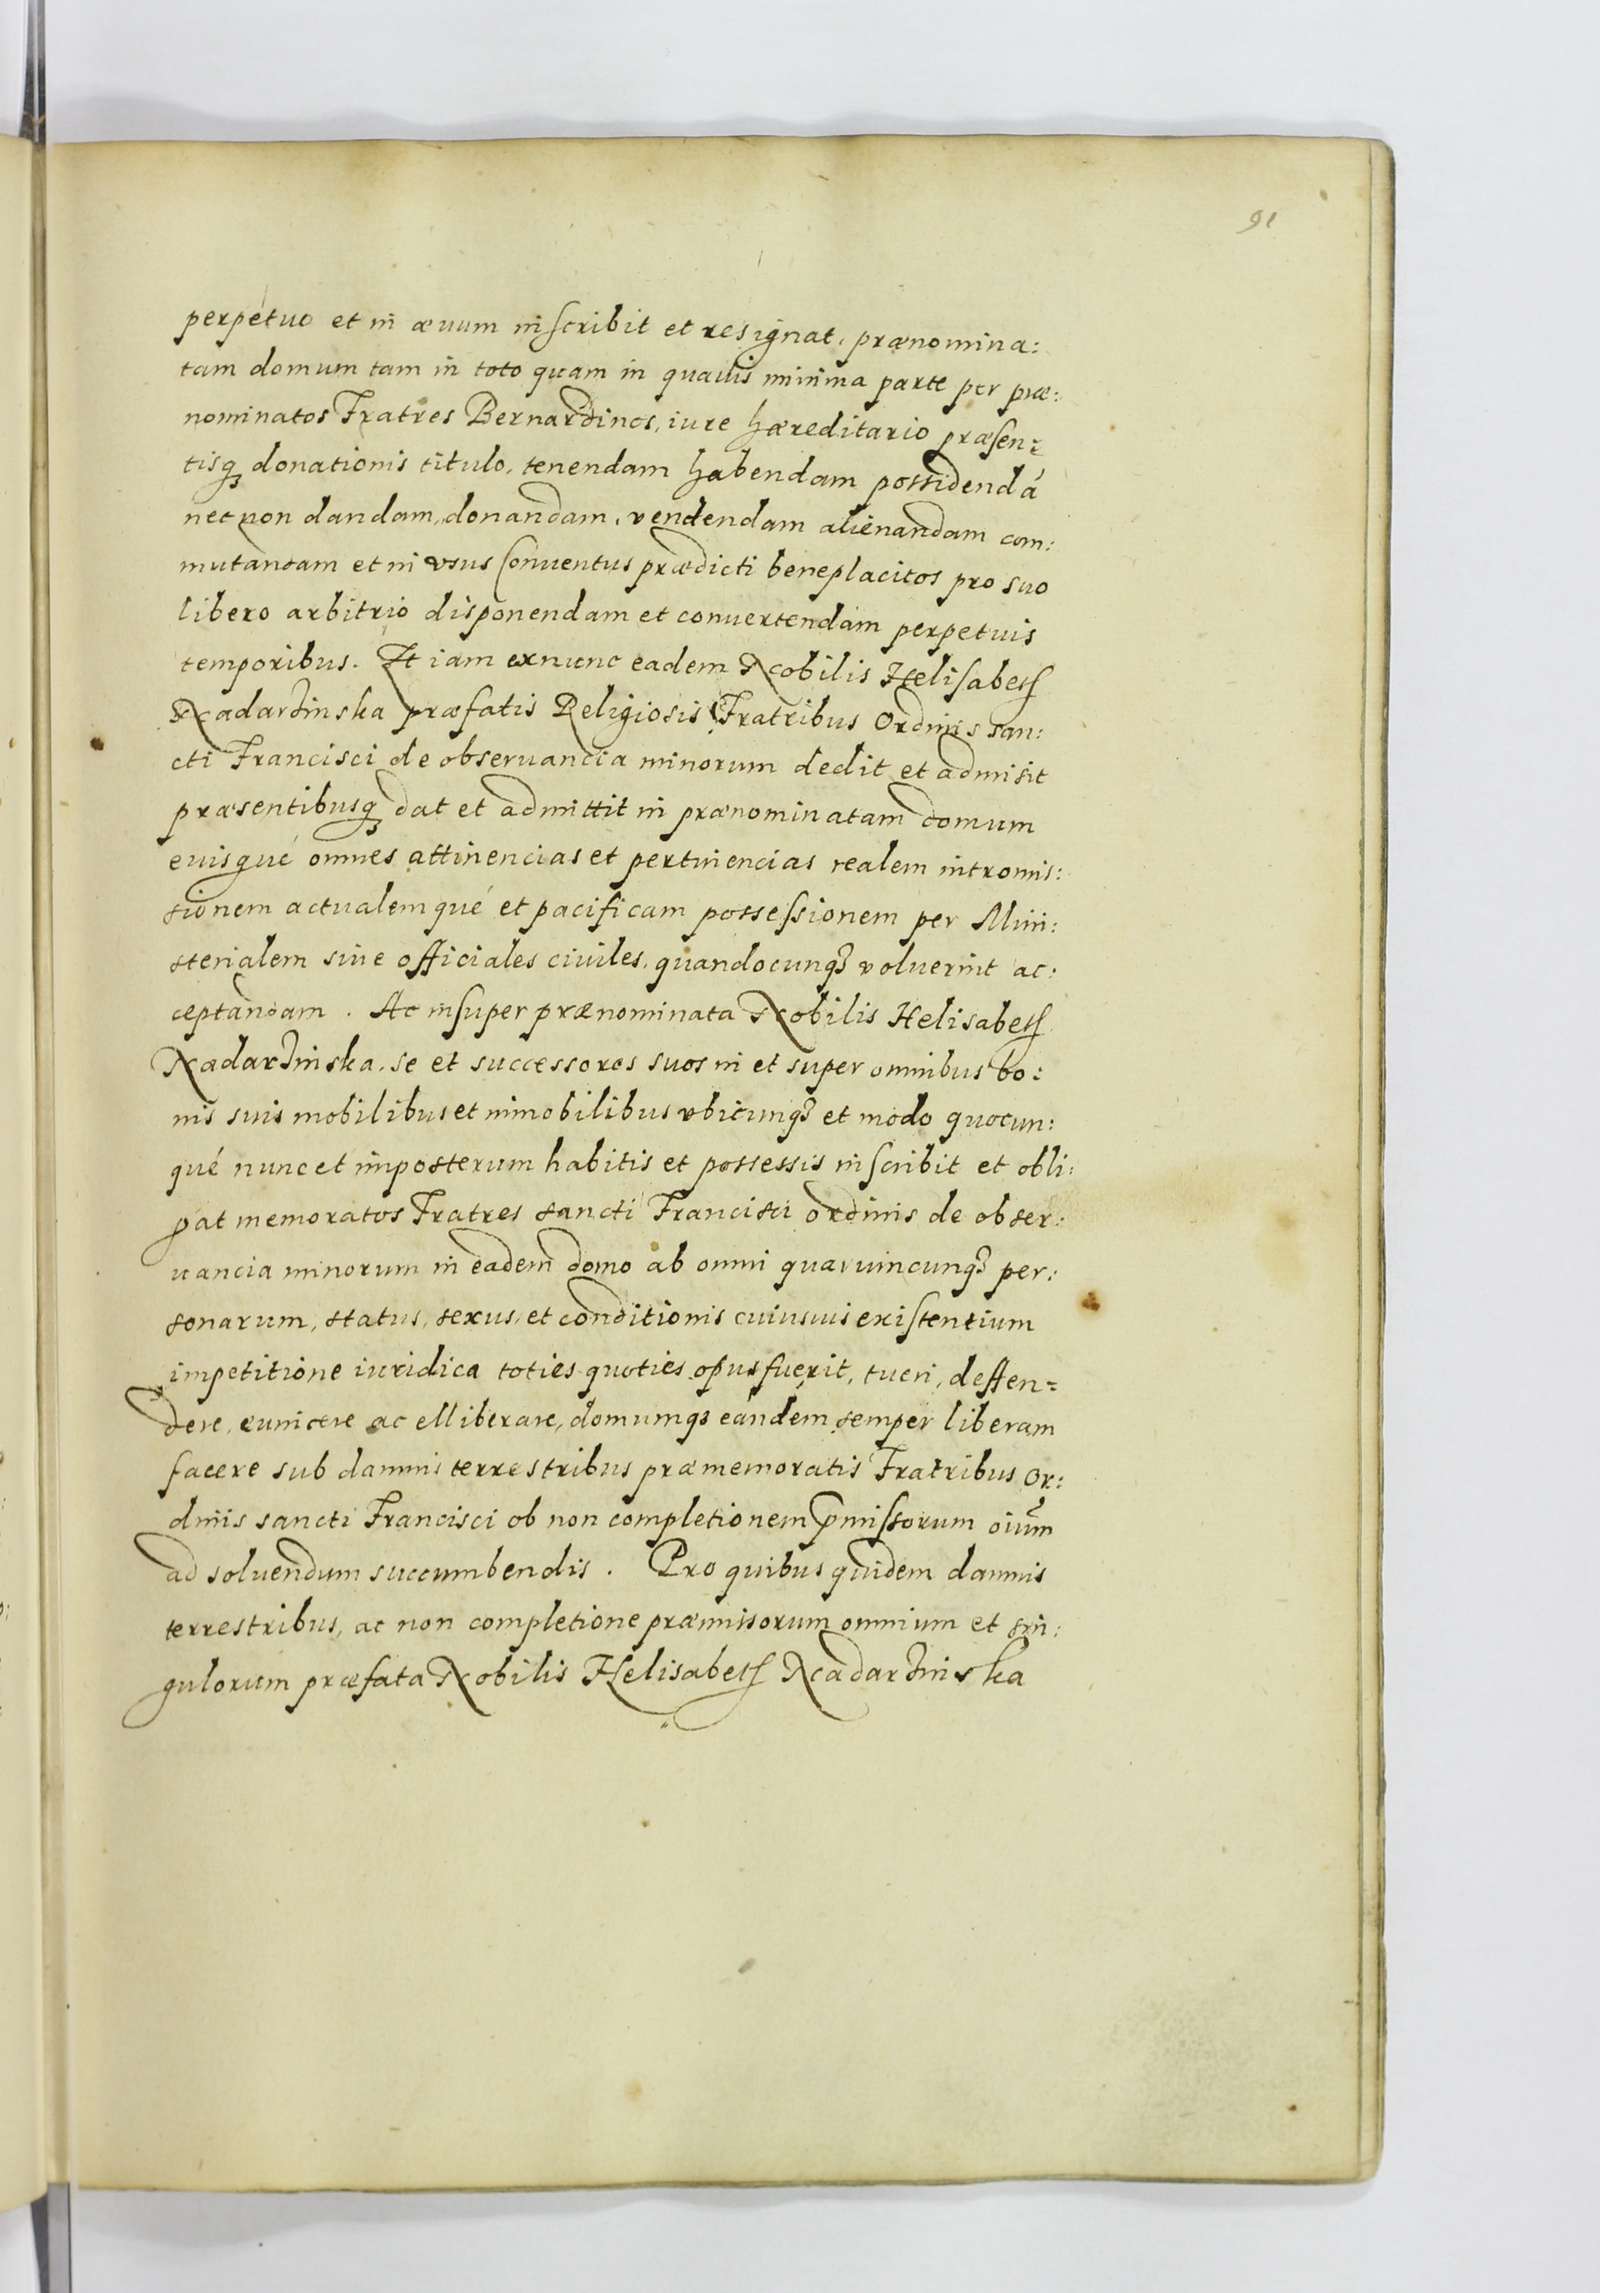 91
perpetuo et in æuum inscribit et resignat, prænomina:
tam domum tam in toto quam in quauis minima parte per præ:
nominatos Fratres Bernardinos, iure hæreditario præsen=
tisq donationis titulo, tenendam habendam possidendá
nec non dandam, donandam, vendendam alienandam com:
mutandam et in vsus Conuentus prædicti beneplacitos pro suo
libero arbitrio disponendam et conuertendam perpetuis
temporibus. Et iam exnunc eadem Nobilis Helisabeth
Nadarzinska præfatis Religiosis Fratribus Ordinis san:
cti Francisci de obseruancia minorum dedit et admisit
præsentibusq dat et admittit in prænominatam domum
euisqué omnes attinencias et pertinencias realem intromis:
sionem actualemqué et pacificam possessionem per Mini:
sterialem siue officiales ciuiles, quandocunq voluerint ac:
ceptandam. Ac insuper prænominata Nobilis Helisabeth
Nadarzinska, se et successores suos in et super omnibus bo:
nis suis mobilibus et immobilibus vbicunq et modo quocun:
qué nunc et imposterum habitis et possessis inscribit et obli:
gat memoratos Fratres sancti Francisci ordinis de obser:
uancia minorum in eadem domo ab omni quaruincunq per:
sonarum, status, sexus, et conditionis cuiusuis existentium
impetitione iuridica toties quoties opus fuerit, tueri, deffen=
dere, euincere ac elliberare, domumq eandem semper liberam
facere sub damnis terrestribus præmemoratis Fratribus Or:
dinis sancti Francisci ob non completionem pmissorum oium
ad soluendum succumbendis. Pro quibus quidem damnis
terrestribus, ac non completione præmissorum omnium et sin:
gulorum præfata Nobilis Helisabeth Nadarzinska